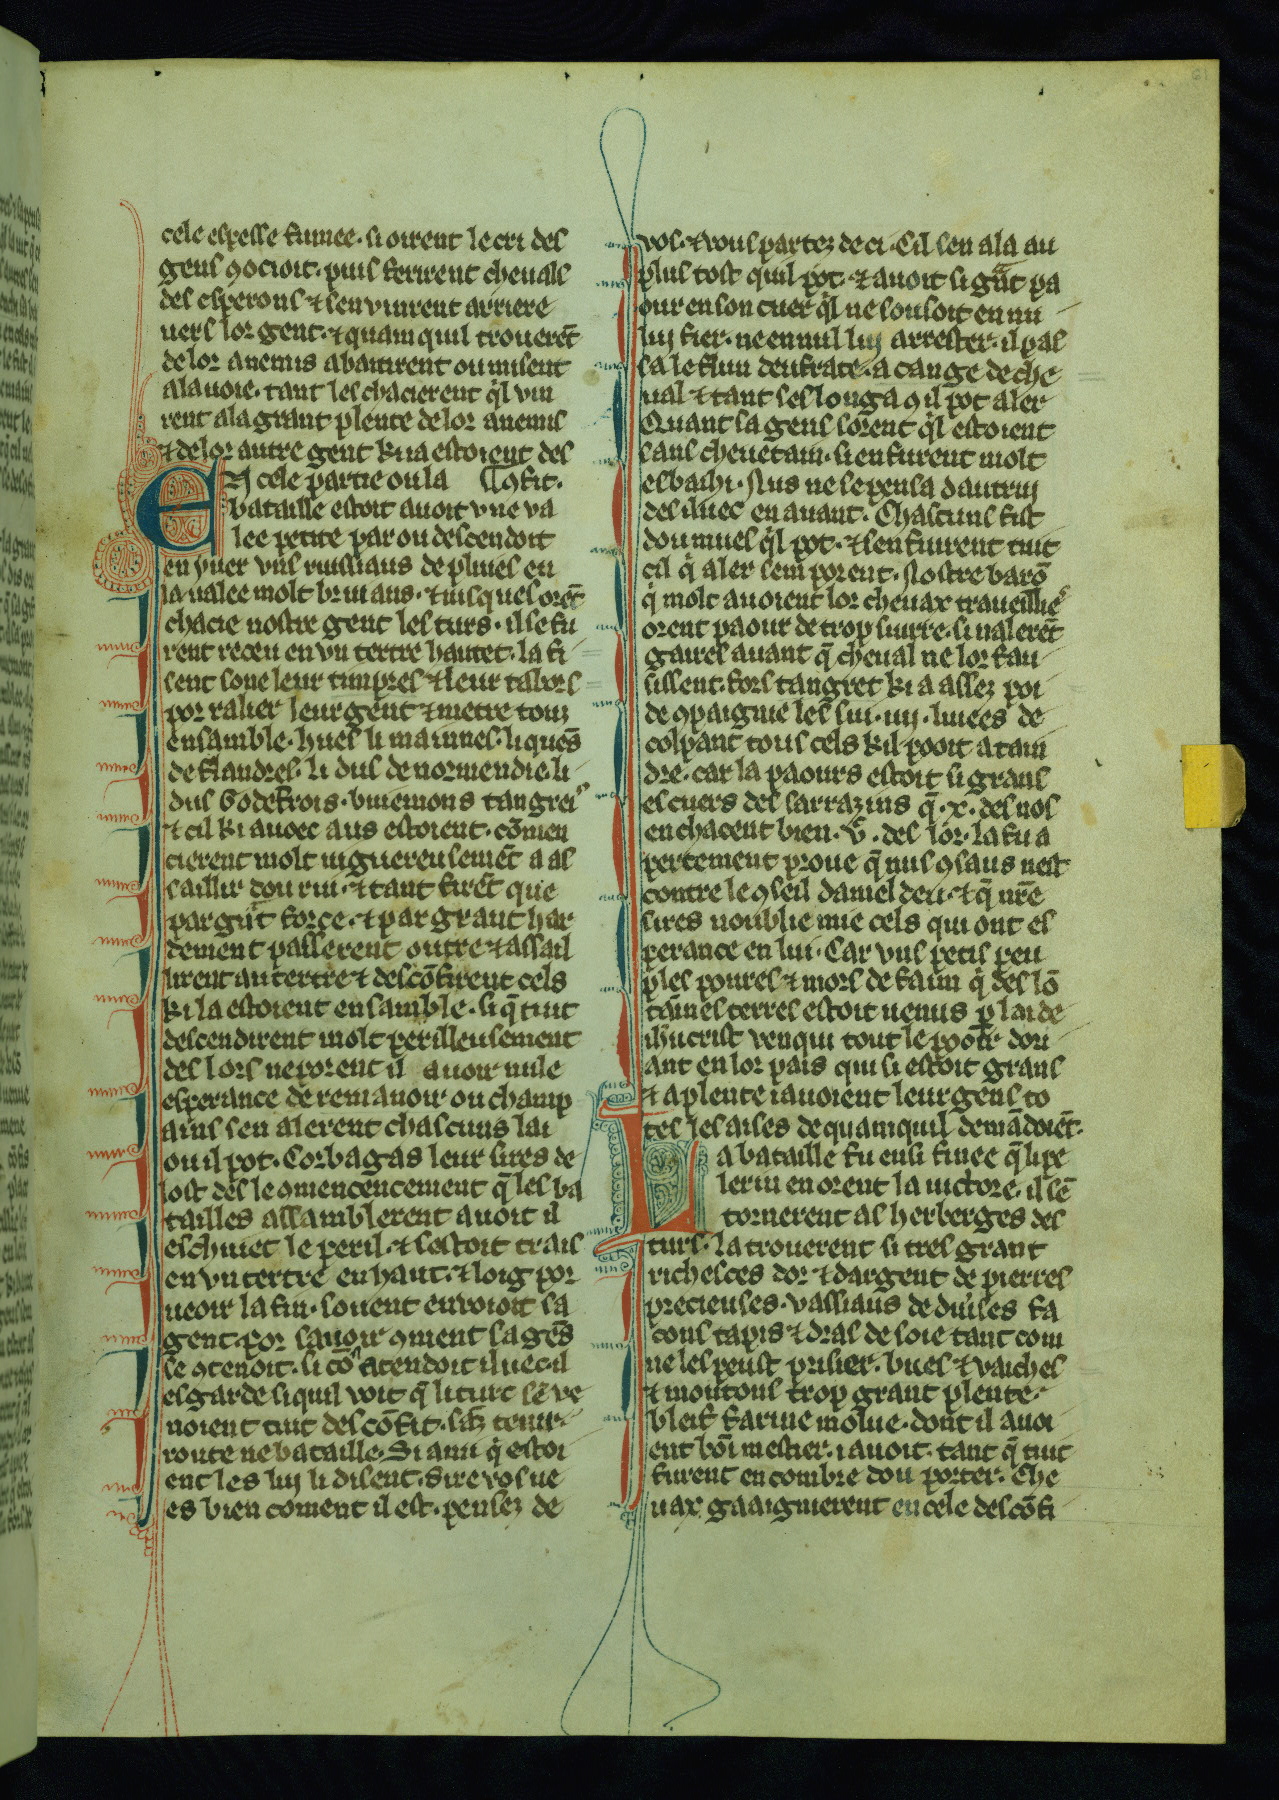 cele espesse fumee. si oirent le cri des
gens ꝯ ocioit. puis ferirent cheuals
des esperons ⁊ sen vinrent arriere
uers lor gent. ⁊ quam quil trouerēt
de lor anemis abatirent ou misent
ala uoie. tant les chacierent q̓l vin
rent ala grant plente de lor anemis
⁊ de lor autre gent ki ia estoient des
En cele partie ou la ꝯfit.
bataille estoit auoit vne va
lee petite par ou descendoit
en yuer vns ruissiaus de pluies en
la ualee molt bruians. ⁊ iusques orēt
chacie nostre gent les turs. il se fu
rent receu en vn tertre hautet. la fi
sent soneleur timpres ⁊ leur tabors
por ralier leur gent ⁊ metre touz
ensamble. hues li mainnes. li quēs
de flandres. li dus de normendie. li
dus Godefrois. buiemons tangreis
⁊ cil ki auoec aus estoient. cōmen
cierent molt uiguereusemēt a as
saillir dou rui. ⁊ tant firēt que
par grāt force. ⁊ par grant har
dement passerent outre ⁊ assail
lirent au tertre ⁊ descōfirent cels
ki la estoient ensamble. si q̄ tuit
descendirent molt perilleusement
des lors ne porent il auoir nule
esperance de remanoir ou champ
ains sen alerent chascuns lai
ou il pot. Corbagas leur sires de
lost des le ꝯmencencement q̄ les ba
tailles assamblerent auoit il
eschiuet le peril. ⁊ sestoit trais
en vn tertre en haut. ⁊ loig por
ueoir la fin. souent enuoioit sa
gent. por sauoir ꝯment sa gēs
se ꝯtenoit. si cō atendoit iluec. il
esgarde si quil voit q̄ li turc sē ve
noient tuit descōfit. sās tenir
route ne bataille. Si ami q̓ estoi
ent les lui li disent. Sire vos ue
es bien coment il est. pensez de
vos. ⁊ vous partez de ci. Cil sen ala au
plus tost quil pot. ⁊ auoit si grāt pa
our en son cuer q̓l ne sousoit en nu
lui fier. ne en nul liu arrester. il pas
sa le flun deufrate. a cange de che
ual ⁊ tant ses longa ꝯ il pot aler
Quant sa gens sorent q̓l estoient
sans cheuetain. si en furent molt
esbahi. Nus ne se pensa dautrui
des iluec en auant. Chascuns fist
dou miues q̓l pot. ⁊ sen fuirent tuit
cil q̓ aler sem porent. Nostre barō
q̓ molt auoient lor cheuax traueillies
orent paour de trop siurre. si nalerēt
gaires auant q̄ cheual ne lor fau
sissent. fors tangret ki a assez poi
de ꝯpaignie les sui. iiij. liuees de
colpant tous cels kil pooit atain
dre. car la paours estoit si grans
es cuers des sarrazins q̄. x. des nos
enchacent bien. C. des lor. la fu a
pertement proue q̄ nus ꝯsaus nest
contre le ꝯseil damel deu. ⁊ q̄ nr̄e
sires noublie mie cels qui ont es
perance en lui. Car vns petis peu
ples poures ⁊ mors de faim q̓ des lō
taines terres estoit uenus p laide
ihucrist venqui tout le pooir dori
ant en lor pais qui si estoit grans
⁊ a plente i auoient leur gens to
tes les aises de quamquil demādoiēt.
La bataille fu ensi finee q̄ li pe
lerin en orent la uictore. il sē
tornerent as herberges des
turs. la trouerent si tres grant
richesces dor ⁊ dargent de pierres
precieuses. vassiaus de duises fa
cons tapis ⁊ dras de soie tant com
ne les peust prisier. bues ⁊ vaiches
⁊ moutons trop grant plente.
bleif farine molue. dont il auoi
ent bon mestier. i auoit. tant q̄ tuit
furent en combre dou porter. Che
uax gaaignierent en cele descōfi